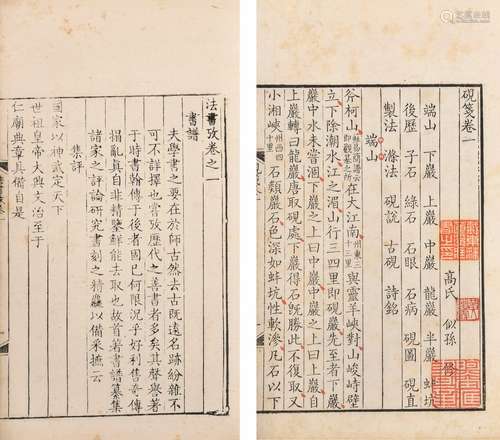 硯箋卷一
高氏 似孫 修
端山 下巖 上巖 中巖 龍巖 半巖 蚌坑
後歷 子石 綠石 石眼 石病 硯圖 硯直
製法 滌法 硯說 古硯 詩銘
端山
斧柯山 在大江南 州東三十三里 與靈羊峽對山峻峙壁
立下際潮水江之湄山行三四里即硯巖先至者下巖
巖中水未嘗涸下巖之上曰中巖中巖之上曰上巖自
上巖轉山曰龍巖唐取硯處下巖得石既勝此不復取又
小湘峽 州西四十里 石類巖石色深如蚌坑性軟滲凡石以下
法書攷卷之一
書譜
夫學書之要在於師古然去古既遠名跡紛雜不
可不詳擇也嘗攷歷代之善書者多矣其聲譽著
于時書翰傳于後者固已何限況乎好利售奇傳
搨亂真自非精鑒鮮能去取也故首著書譜纂集
諸家之評論研究書刻之精麤以備采摭云
集評
國家以神武定天下
世祖皇帝大興文治至于
仁廟典章具備自是